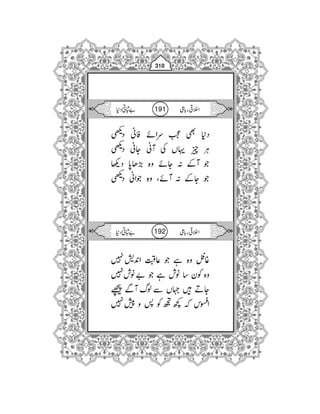 310
اخلاقی رباعی 191 بے ثباتیٔ دنیا
دنیا بھی عجب سرائے فانی دیکھی
ہر چیز یہاں کی آنی جانی دیکھی
جو آکے نہ جائے وہ بڑھاپا دیکھا
جو جاکے نہ آئے، وہ جوانی دیکھی
اخلاقی رباعی 192 بے ثباتیٔ دنیا
غافل ہے وہ جو عاقبت اندیش نہیں
وہ کون سا نوش ہے جو بے نیش نہیں
جاتے ہیں جہاں سے لوگ آگے پیچھے
افسوس کہ کچھ تجھ کو پس و پیش نہیں